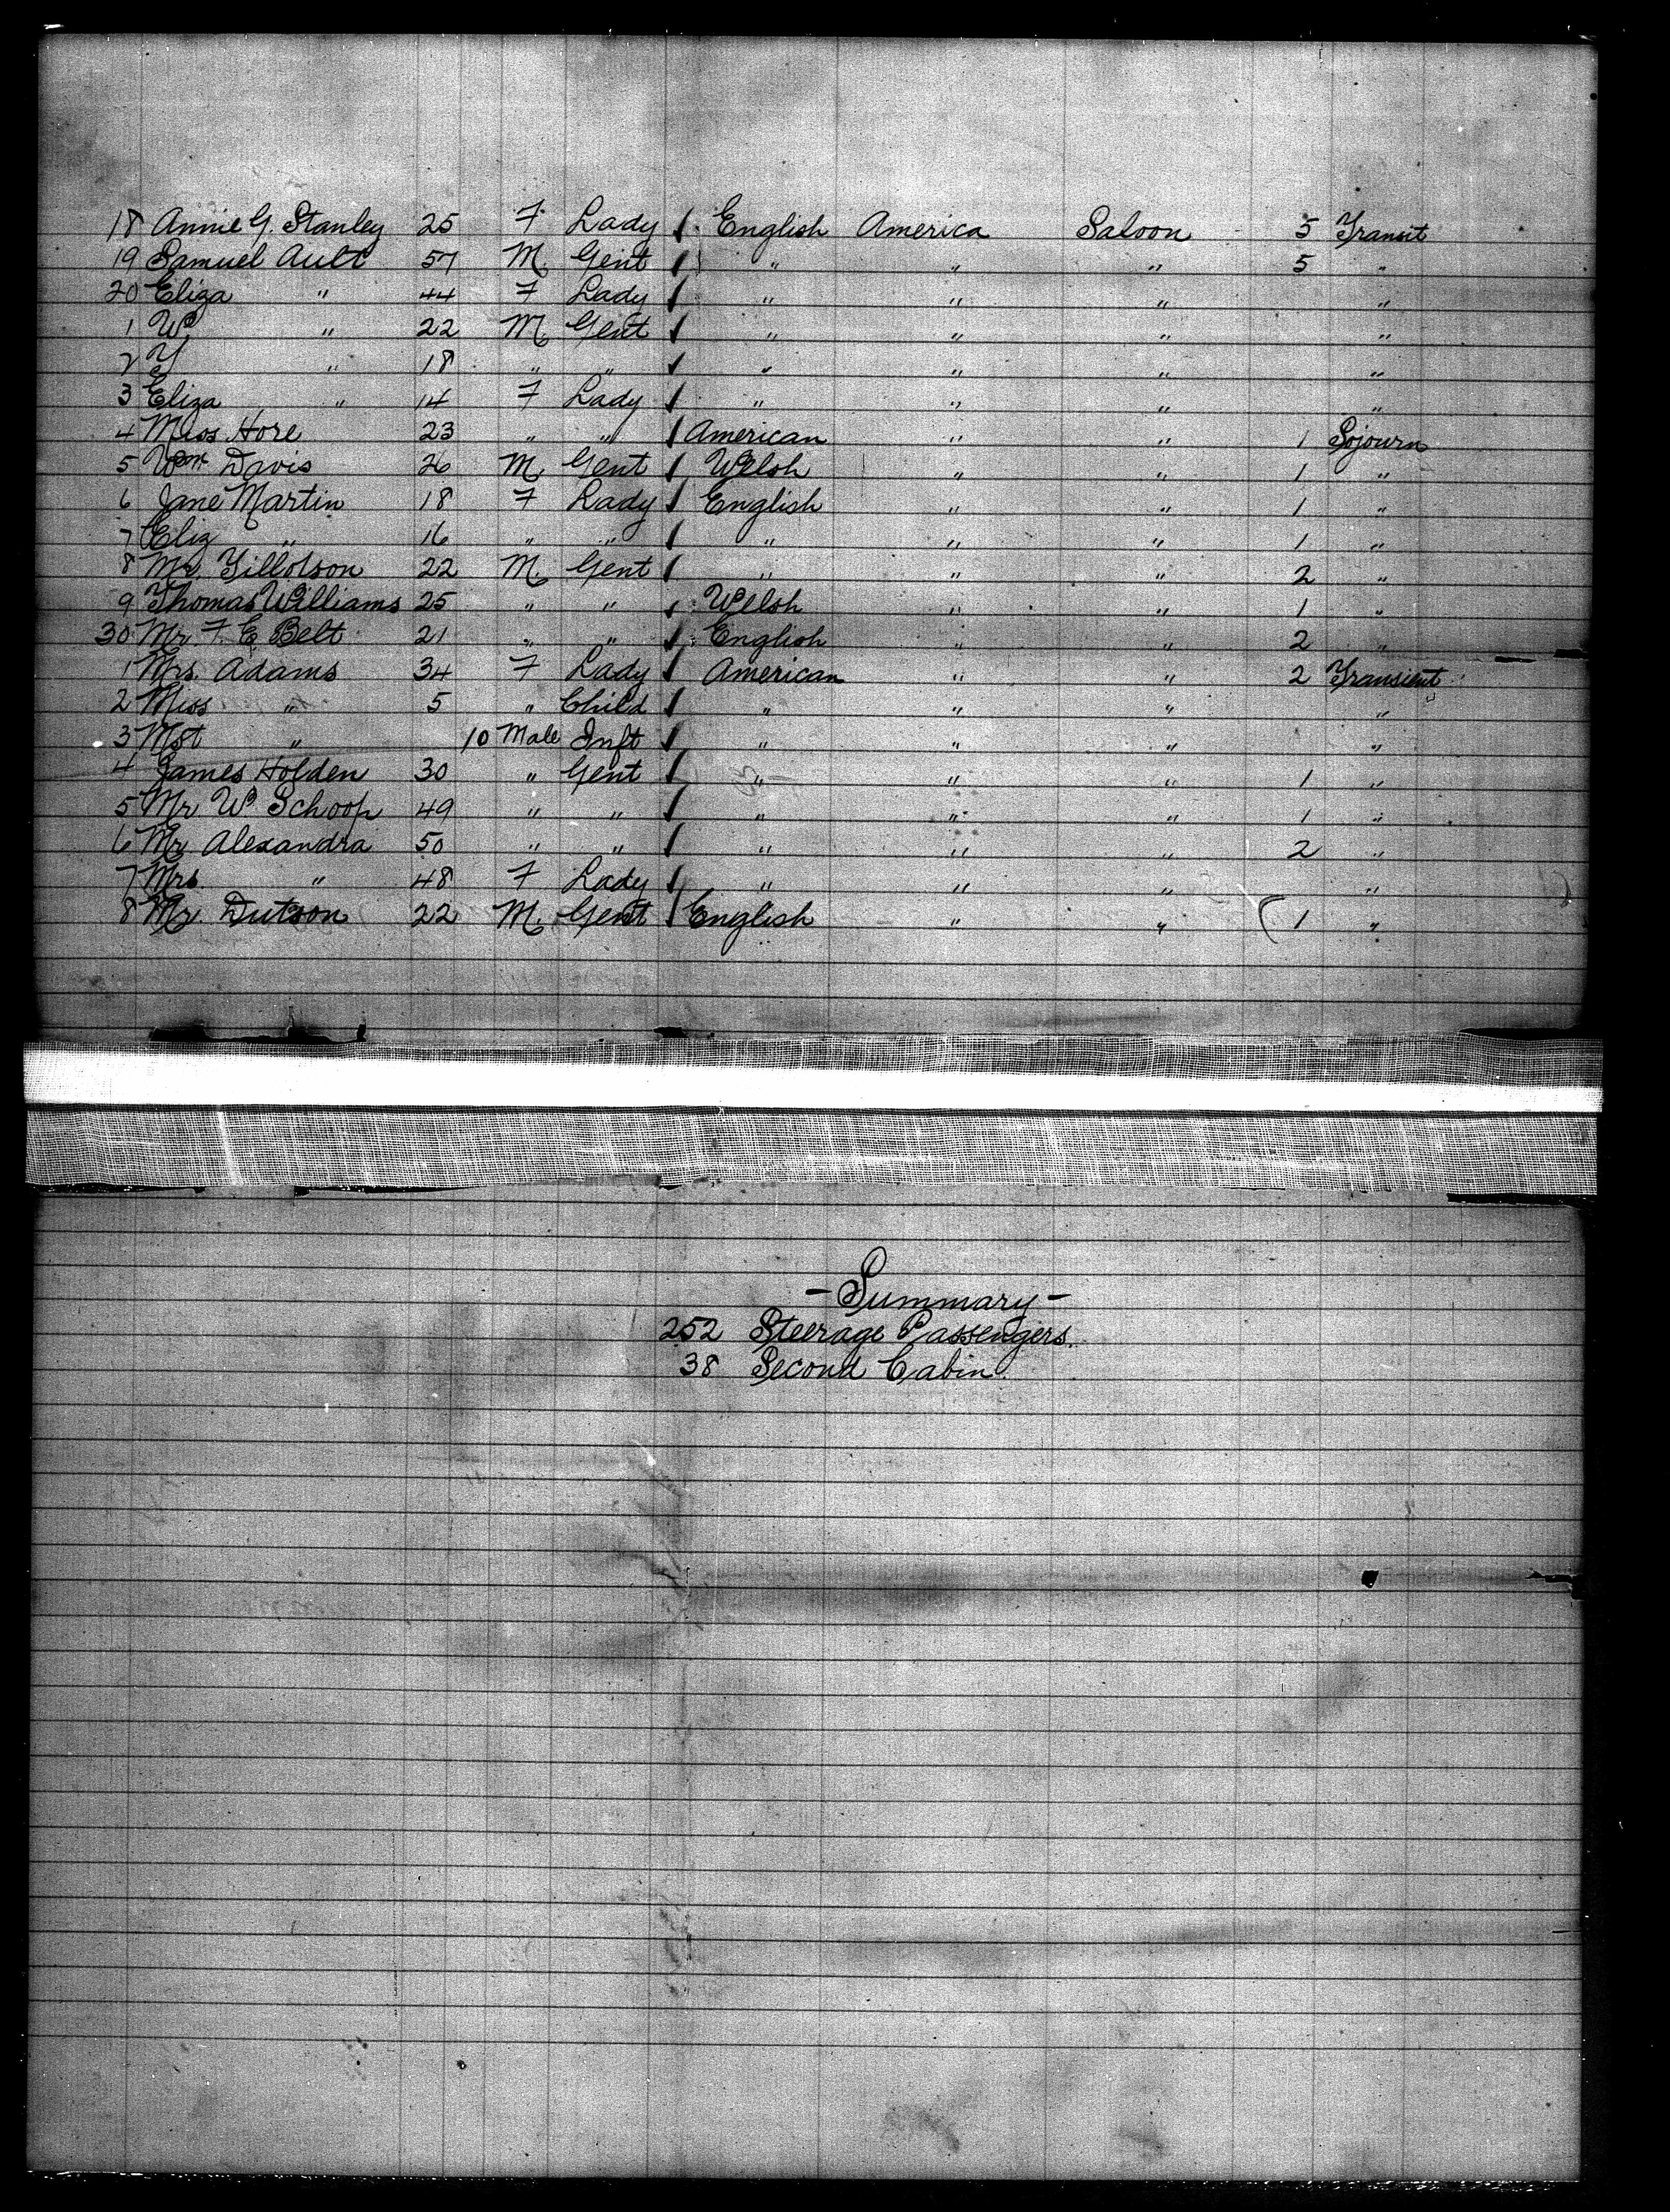 18 Annie G. Stanley 25 F Lady English America Saloon 5 Transit
19 Samuel Ault 57 M. Gent " " " 5 "
20 Eliza " 44 F Lady " " " "
1 W. " 22 M. Gent " " " "
2 Y " 18 " " " " " "
3 Eliza " 14 F Lady " " " "
4 Miss Hore 23 " " American " " 1 Sojourn
5 Wm Davis 26 M. Gent Welsh " " 1 "
6 Jane Martin 18 F Lady English " " 1 "
7 Eliz " 16 " " " " " 1 "
8 Mr. Tillotson 22 M. Gent " " " 2 "
9 Thomas Williams 25 " " Welsh " " 1 "
30 Mr. F. E. Belt 21 " " English " " 2 "
1 Mrs. Adams 34 F Lady American " " 2 Transient
2 Miss " 5 " Child " " " "
3 Mst " 10 Male Inft " " " "
4 James Holden 30 " Gent " " " 1 "
5 Mr. W. Schoop 49 " " " " " 1 "
6 Mr Alexandra 50 " " " " " 2 "
7 Mrs. " 48 F Lady " " " "
8 Mr. Dutson 22 M. Gent English " " 1 "
- Summary -
252 Steerage Passengers.
38 Second Cabin.